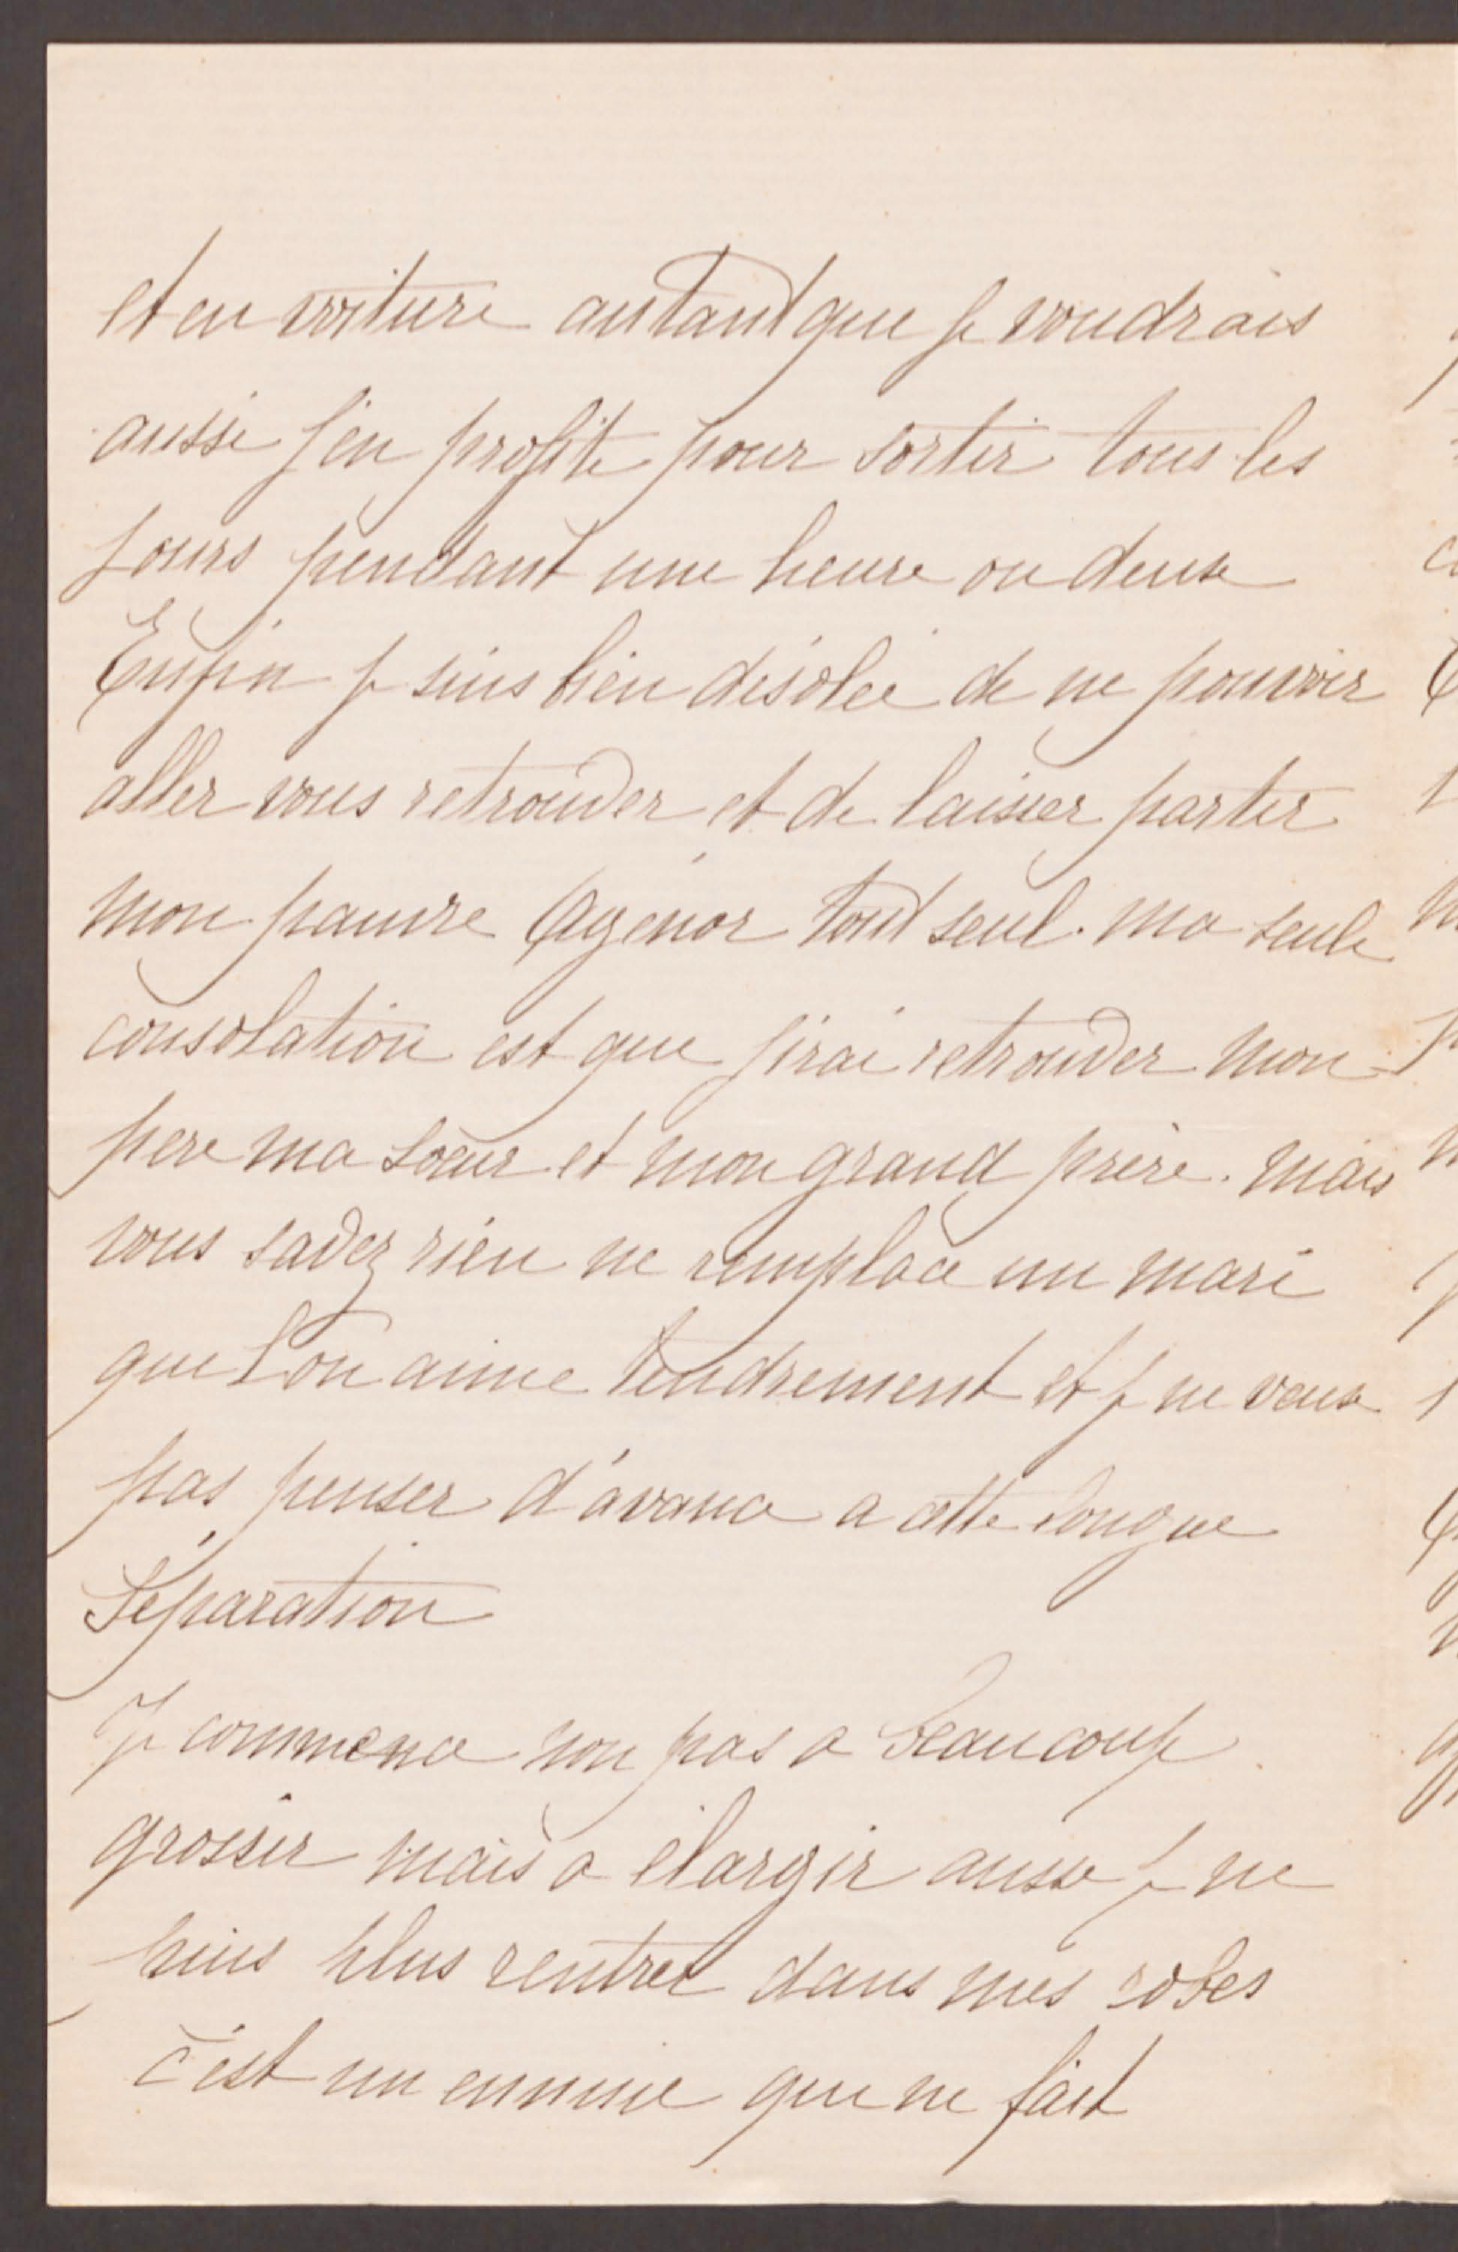 et en voiture autant que je voudrais
aussi j'en profite pour sortir tous les
jours pendant une heure ou deux
Enfin je suis bien désolée de ne pouvoir
aller vous retrouver et de laisser partir
mon pauvre Agénor tout seul. ma seule
consolation est que j'irai retrouver mon
pere ma sœur et mon grand père. mais
vous savez rien ne remplace un mari
que l'on aime tendrement et je ne veux
pas penser d'avance a cette longue
Séparation
Je commence non pas a beaucoup
grossir mais a élargir aussi je ne
puis plus rentrer dans mes robes
c'est un ennuie qui ne fait